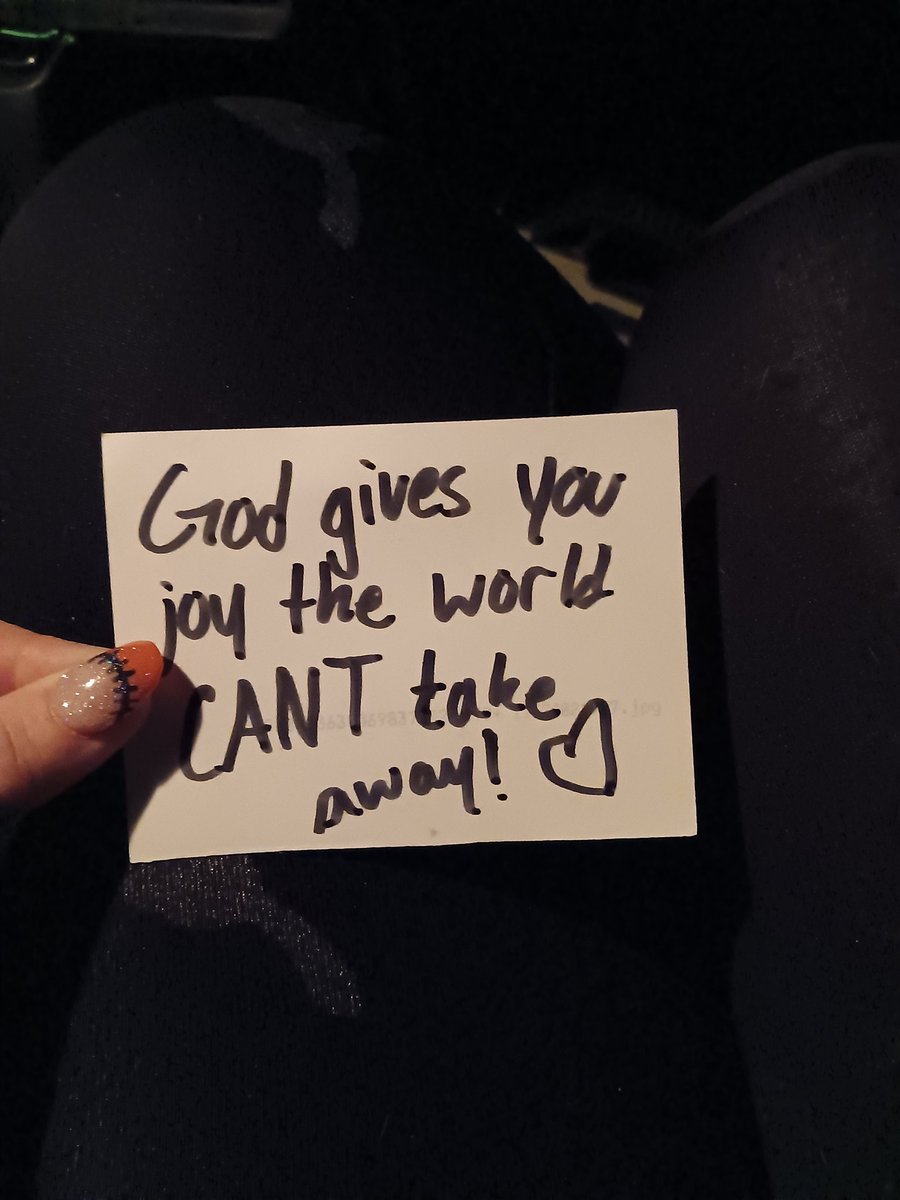 God gives you
joy the world
CANT take
away!